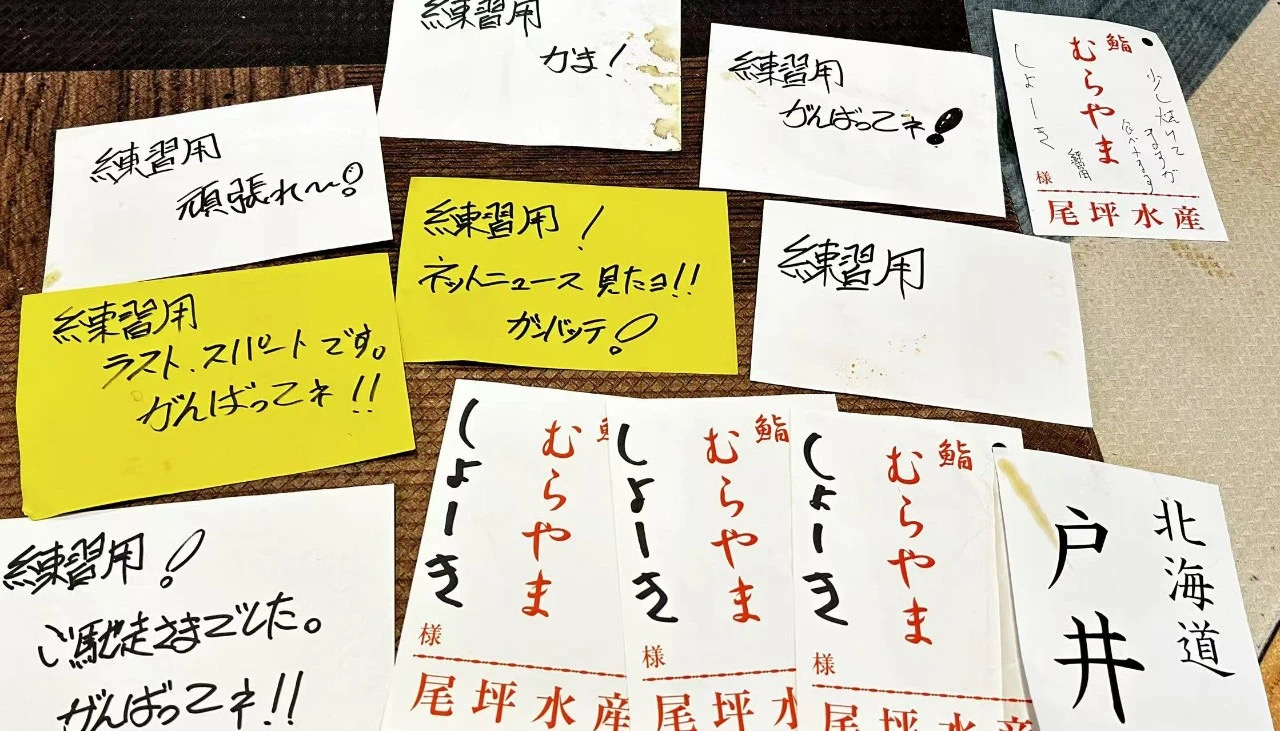 練習用
かま!
練習用
がんばってネ!
鮨
むらやま
しょーき
少し炊けて
ますが
食べれます
練習用
様
尾坪水産
練習用
頑張れ〜!
練習用!
ネットニュース見たヨ!!
ガンバッテ!
練習用
練習用
ラスト.スパートです。
がんばってネ!!
鮨
むらやま
しょーき
様
尾坪水産
鮨
むらやま
しょーき
様
尾坪水
鮨
むらやま
しょーき
様
尾坪水産
北海道
戸井
練習用!
ご馳走さまでした。
がんばってネ!!